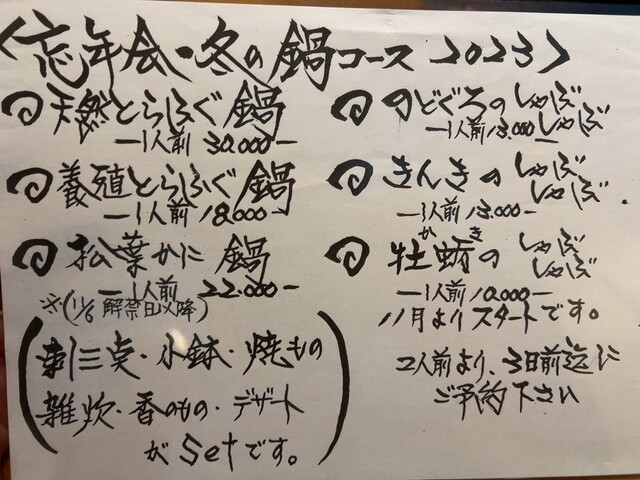 <忘年会・冬の鍋コース 2023>
天然とらふぐ鍋
ー1人前 30.000ー
養殖とらふぐ鍋
ー1人前 18.000ー
松葉かに鍋
ー1人前 22.000ー
※(11/6 解禁日以降)
(刺三点・小鉢・焼もの
雑炊・香のもの・デザート
がSetです。)
のどぐろのしゃぶしゃぶ
ー1人前 13.000ー
きんきのしゃぶしゃぶ
ー1人前 13.000ー
牡蛎のしゃぶしゃぶ
かき
ー1人前 10.000ー
11月よりスタートです。
2人前より、3日前迄に
ご予約下さい